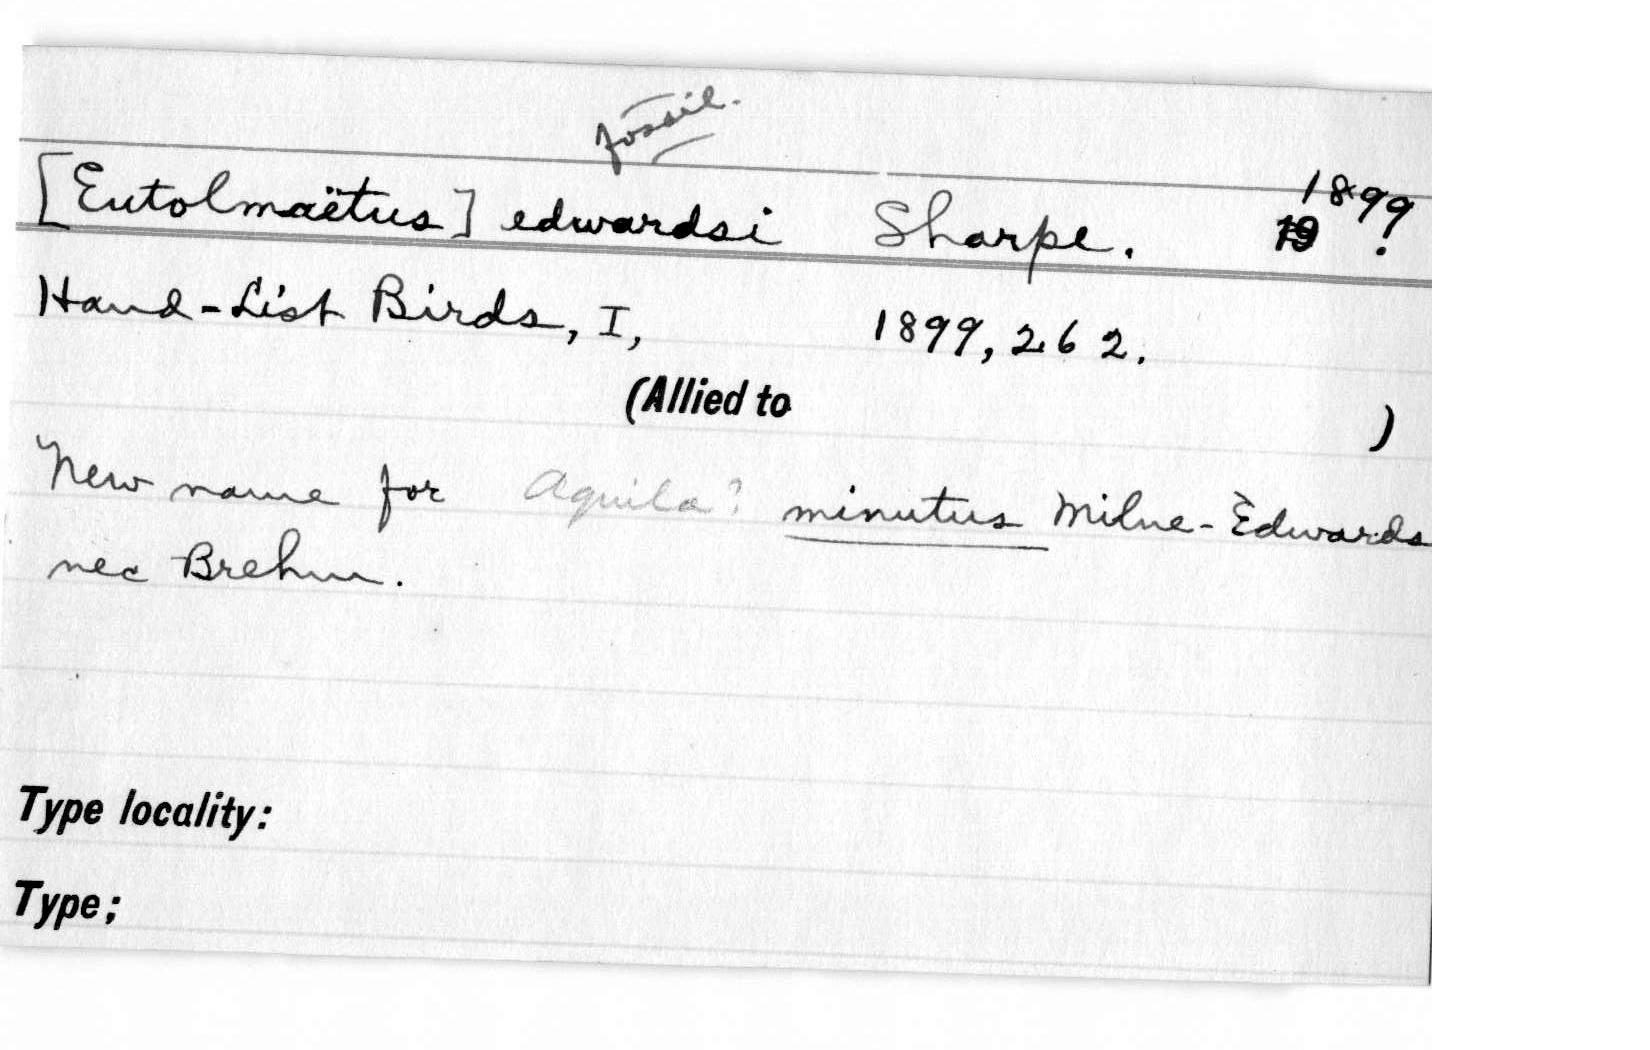 fossil.
[Eutolmaëtus] edwardsi Sharpe. 1899
19 .
Hand-List Birds, I, 1899, 262.
(Allied to )
New name for Aquila? minutus Milne-Edwards
nec Brehm.
Type locality:
Type;